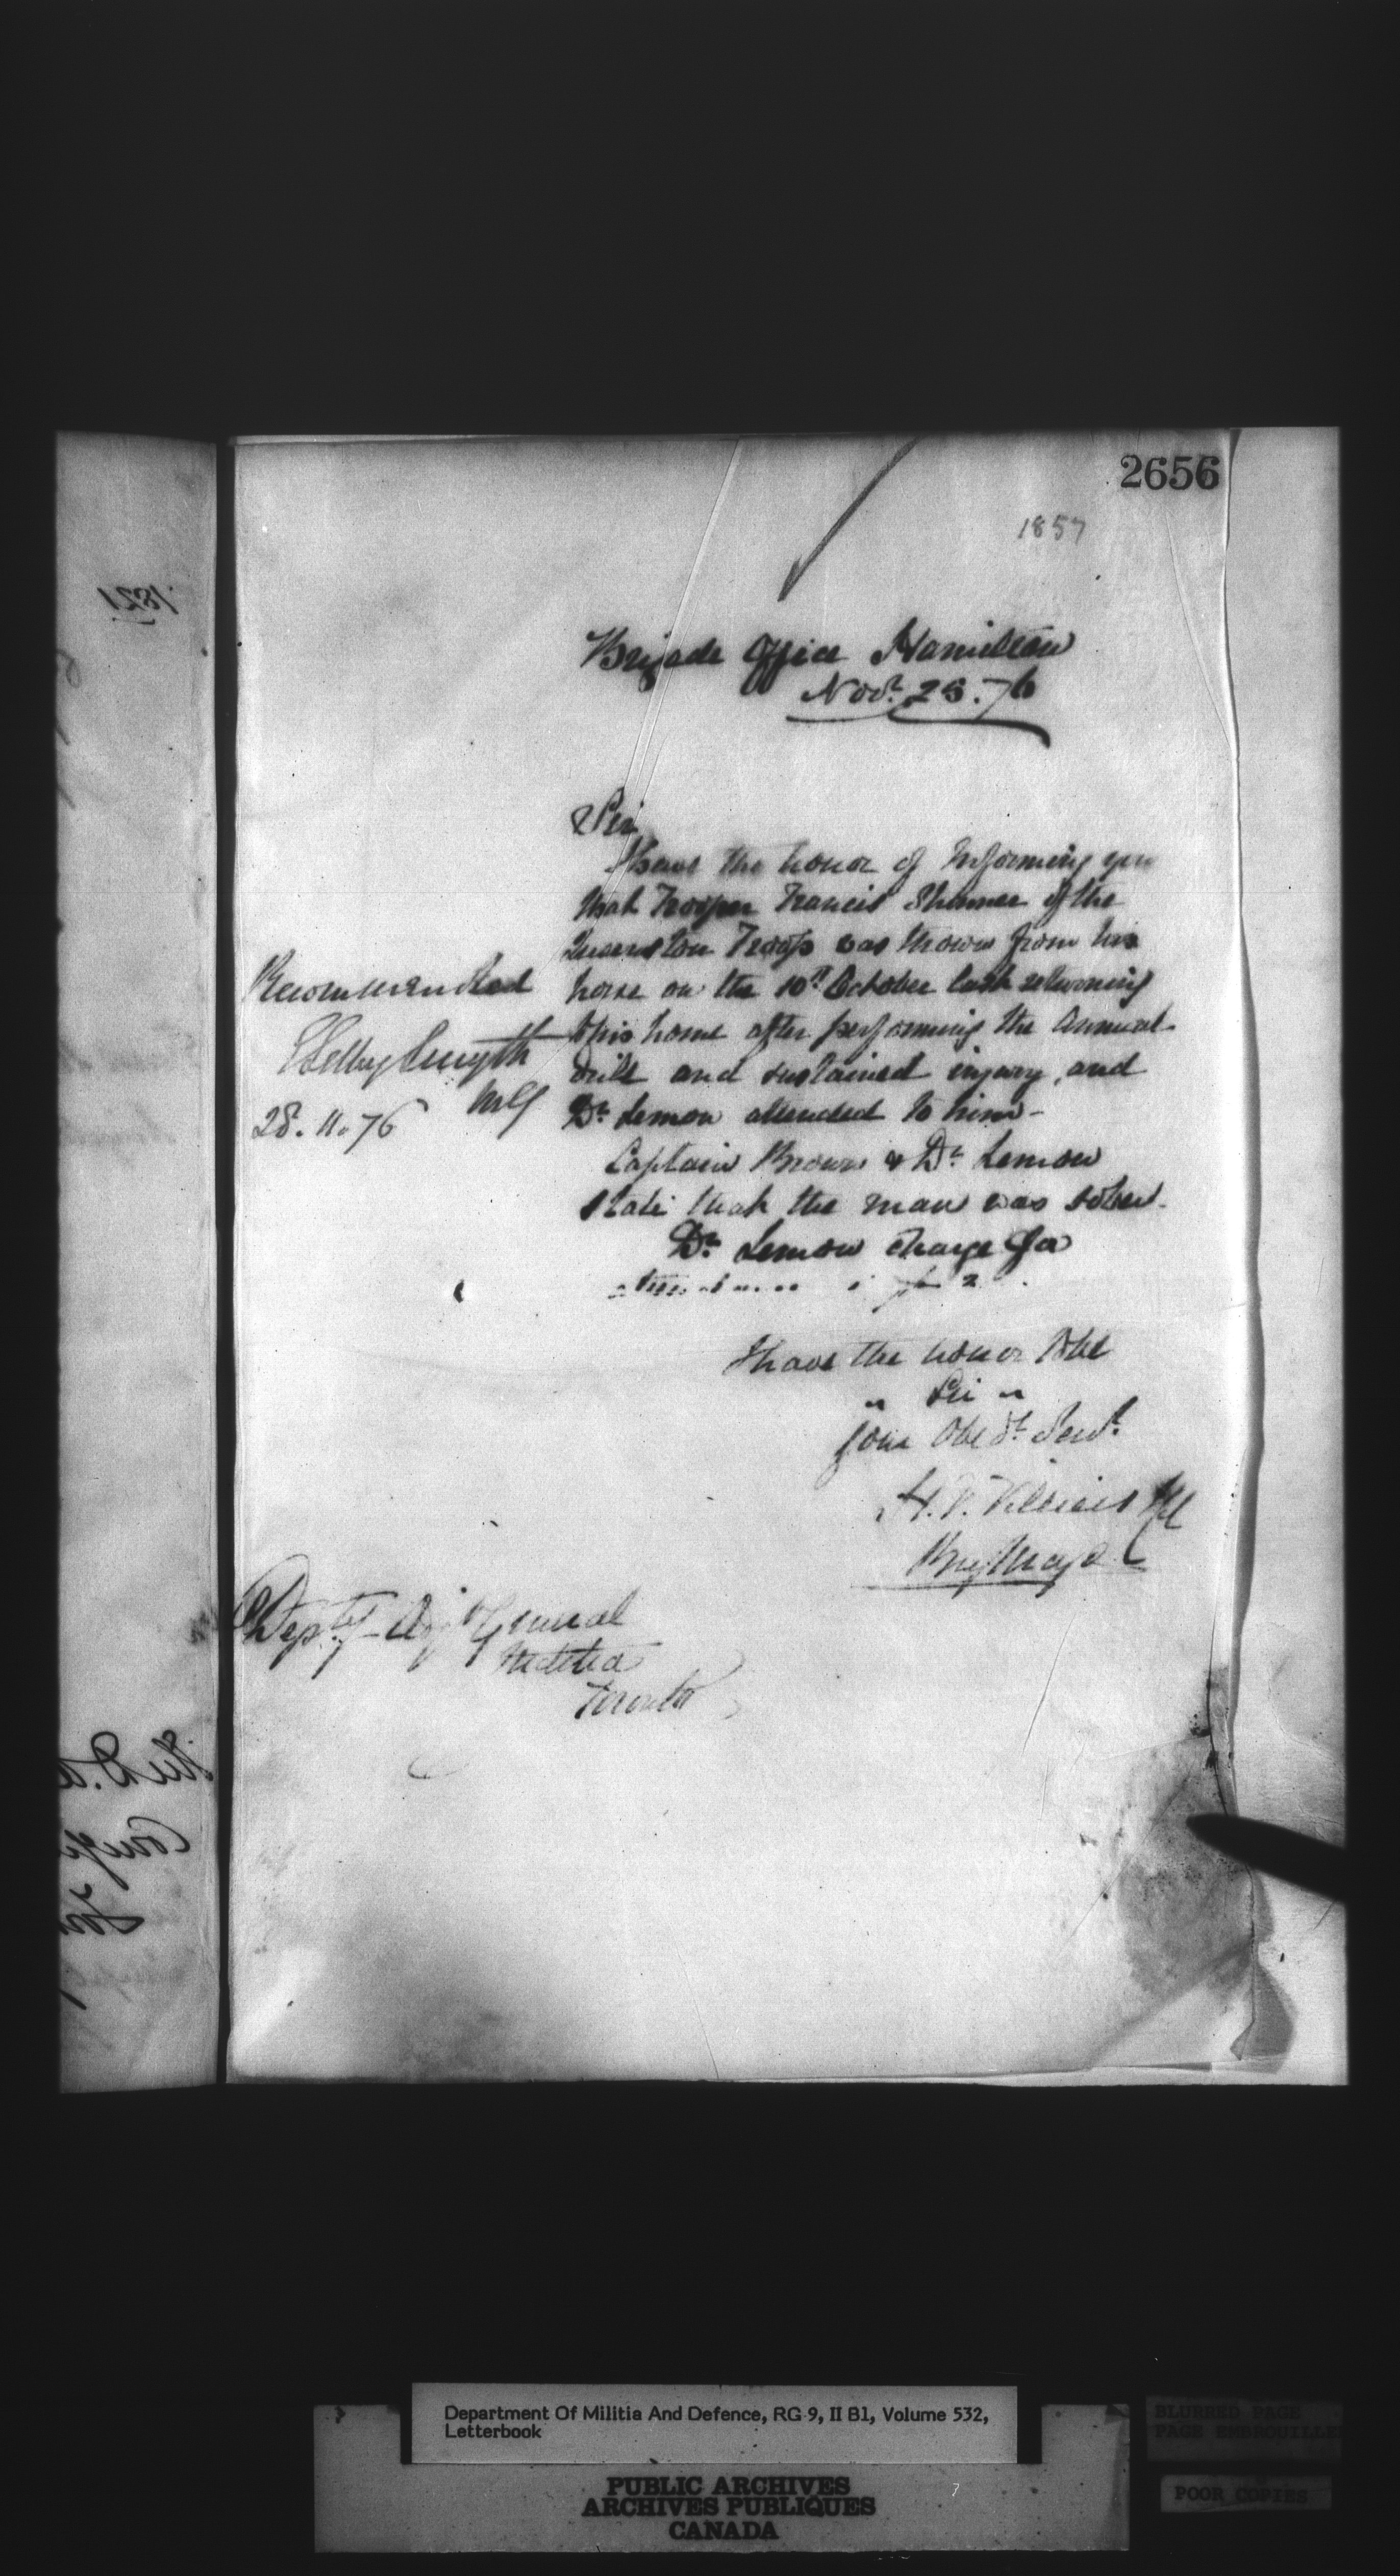 2656
1857
Brigade Office Hamilton
Novr. 25. 76
Sir
I have the honor of Informing you
that Trooper Francis of the
Queenston Troop was thrown from his
horse on the 10th October last returning
to his home after performing the Annual
Drill and sustained injury, and
Dr Lemon attended to him -
Captain Brown & Dr. Lemon
state that the man was sober.
Dr Lemon charge for
2
I have the honor to be
" Sir "
Your Obedt. Servt.
H. V. Villiers
Brig. Major
Recommended
Selby Smyth
MG
28. 11. 76
Depty Adjt General
Militia
Toronto
1821
Department Of Militia And Defence, RG 9, II B1, Volume 532,
Letterbook
PUBLIC ARCHIVES
ARCHIVES PUBLIQUES
CANADA
BLURRED PAGE
PAGE EMBROUILLE
POOR COPIES